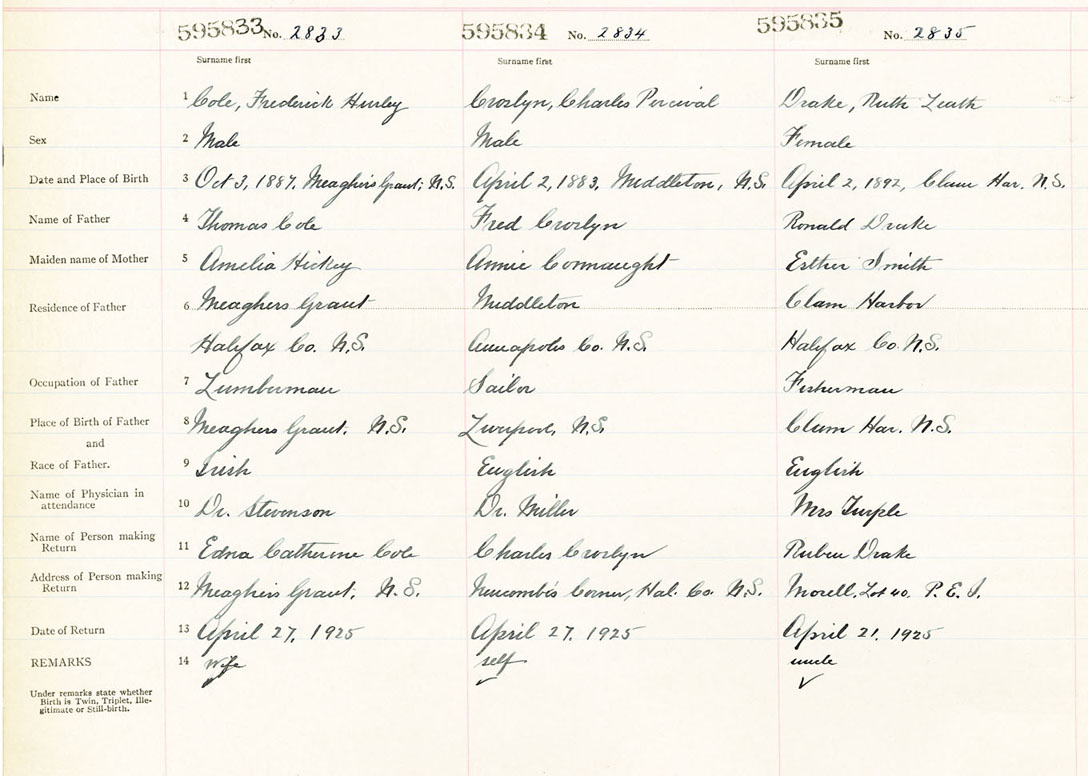 595833 No. 2833 595834 No. 2834 595835 No. 2835
Surname first Surname first Surname first
Name 1 Cole, Frederick Hurley Croslyn, Charles Percival Drake, Ruth Leath
Sex 2 Male Male Female
Date and Place of Birth 3 Oct 3, 1887, Meaghers Grant, N.S. April 2, 1883, Middleton, N.S. April 2, 1892, Clam Har. N.S.
Name of Father 4 Thomas Cole Fred Croslyn Ronald Drake
Maiden name of Mother 5 Amelia Hickey Annie Connaught Esther Smith
Residence of Father 6 Meaghers Grant Middleton Clam Harbor
Halifax Co. N.S. Annapolis Co. N.S. Halifax Co. N.S.
Occupation of Father 7 Lumberman Sailor Fisherman
Place of Birth of Father 8 Meaghers Grant, N.S. Liverpool, N.S. Clam Har. N.S.
and
Race of Father. 9 Irish English English
Name of Physician in attendance 10 Dr. Stevenson Dr. Miller Mrs Turple
Name of Person making Return 11 Edna Catherine Cole Charles Croslyn Ruben Drake
Address of Person making Return 12 Meaghers Grant, N.S. Newcombs Corner, Hal. Co. N.S. Morell, Lot 40. P.E.I.
Date of Return 13 April 27, 1925 April 27, 1925 April 21, 1925
REMARKS 14 wife self uncle
Under remarks state whether
Birth is Twin, Triplet, Ille-
gitimate or Still-birth.